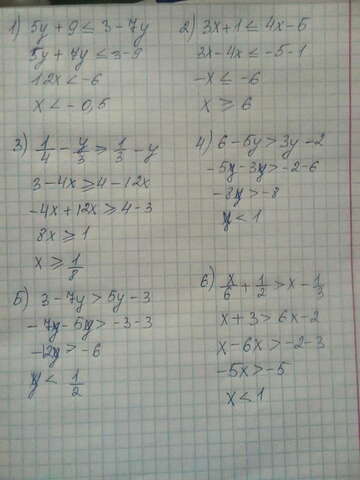 1) 5y + 9 ≤ 3 - 7y
5y + 7y ≤ 3 - 9
12x < -6
x < -0,5
2) 3x + 1 ≤ 4x - 5
3x - 4x ≤ -5 - 1
-x ≤ -6
x ≥ 6
3) 1/4 - y/3 ≥ 1/3 - y
3 - 4x ≥ 4 - 12x
-4x + 12x ≥ 4 - 3
8x ≥ 1
x ≥ 1/8
4) 6 - 5y > 3y - 2
-5y - 3y > -2 - 6
-8y > -8
y < 1
5) 3 - 7y > 5y - 3
-7y - 5y > -3 - 3
-12y > -6
y < 1/2
6) x/6 + 1/2 > x - 1/3
x + 3 > 6x - 2
x - 6x > -2 - 3
-5x > -5
x < 1